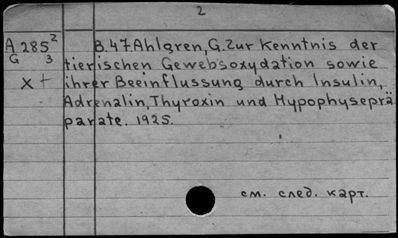 2
A 285²
G 3
X +
B.47.Ahlgren,G.Zur Kenntnis der
tierischen Gewebsoxydation sowie
ihrer Beeinflussung durch Insulin,
Adrenalin,Thyroxin und Hypophyseprä
parate. 1925.
см. след. карт.